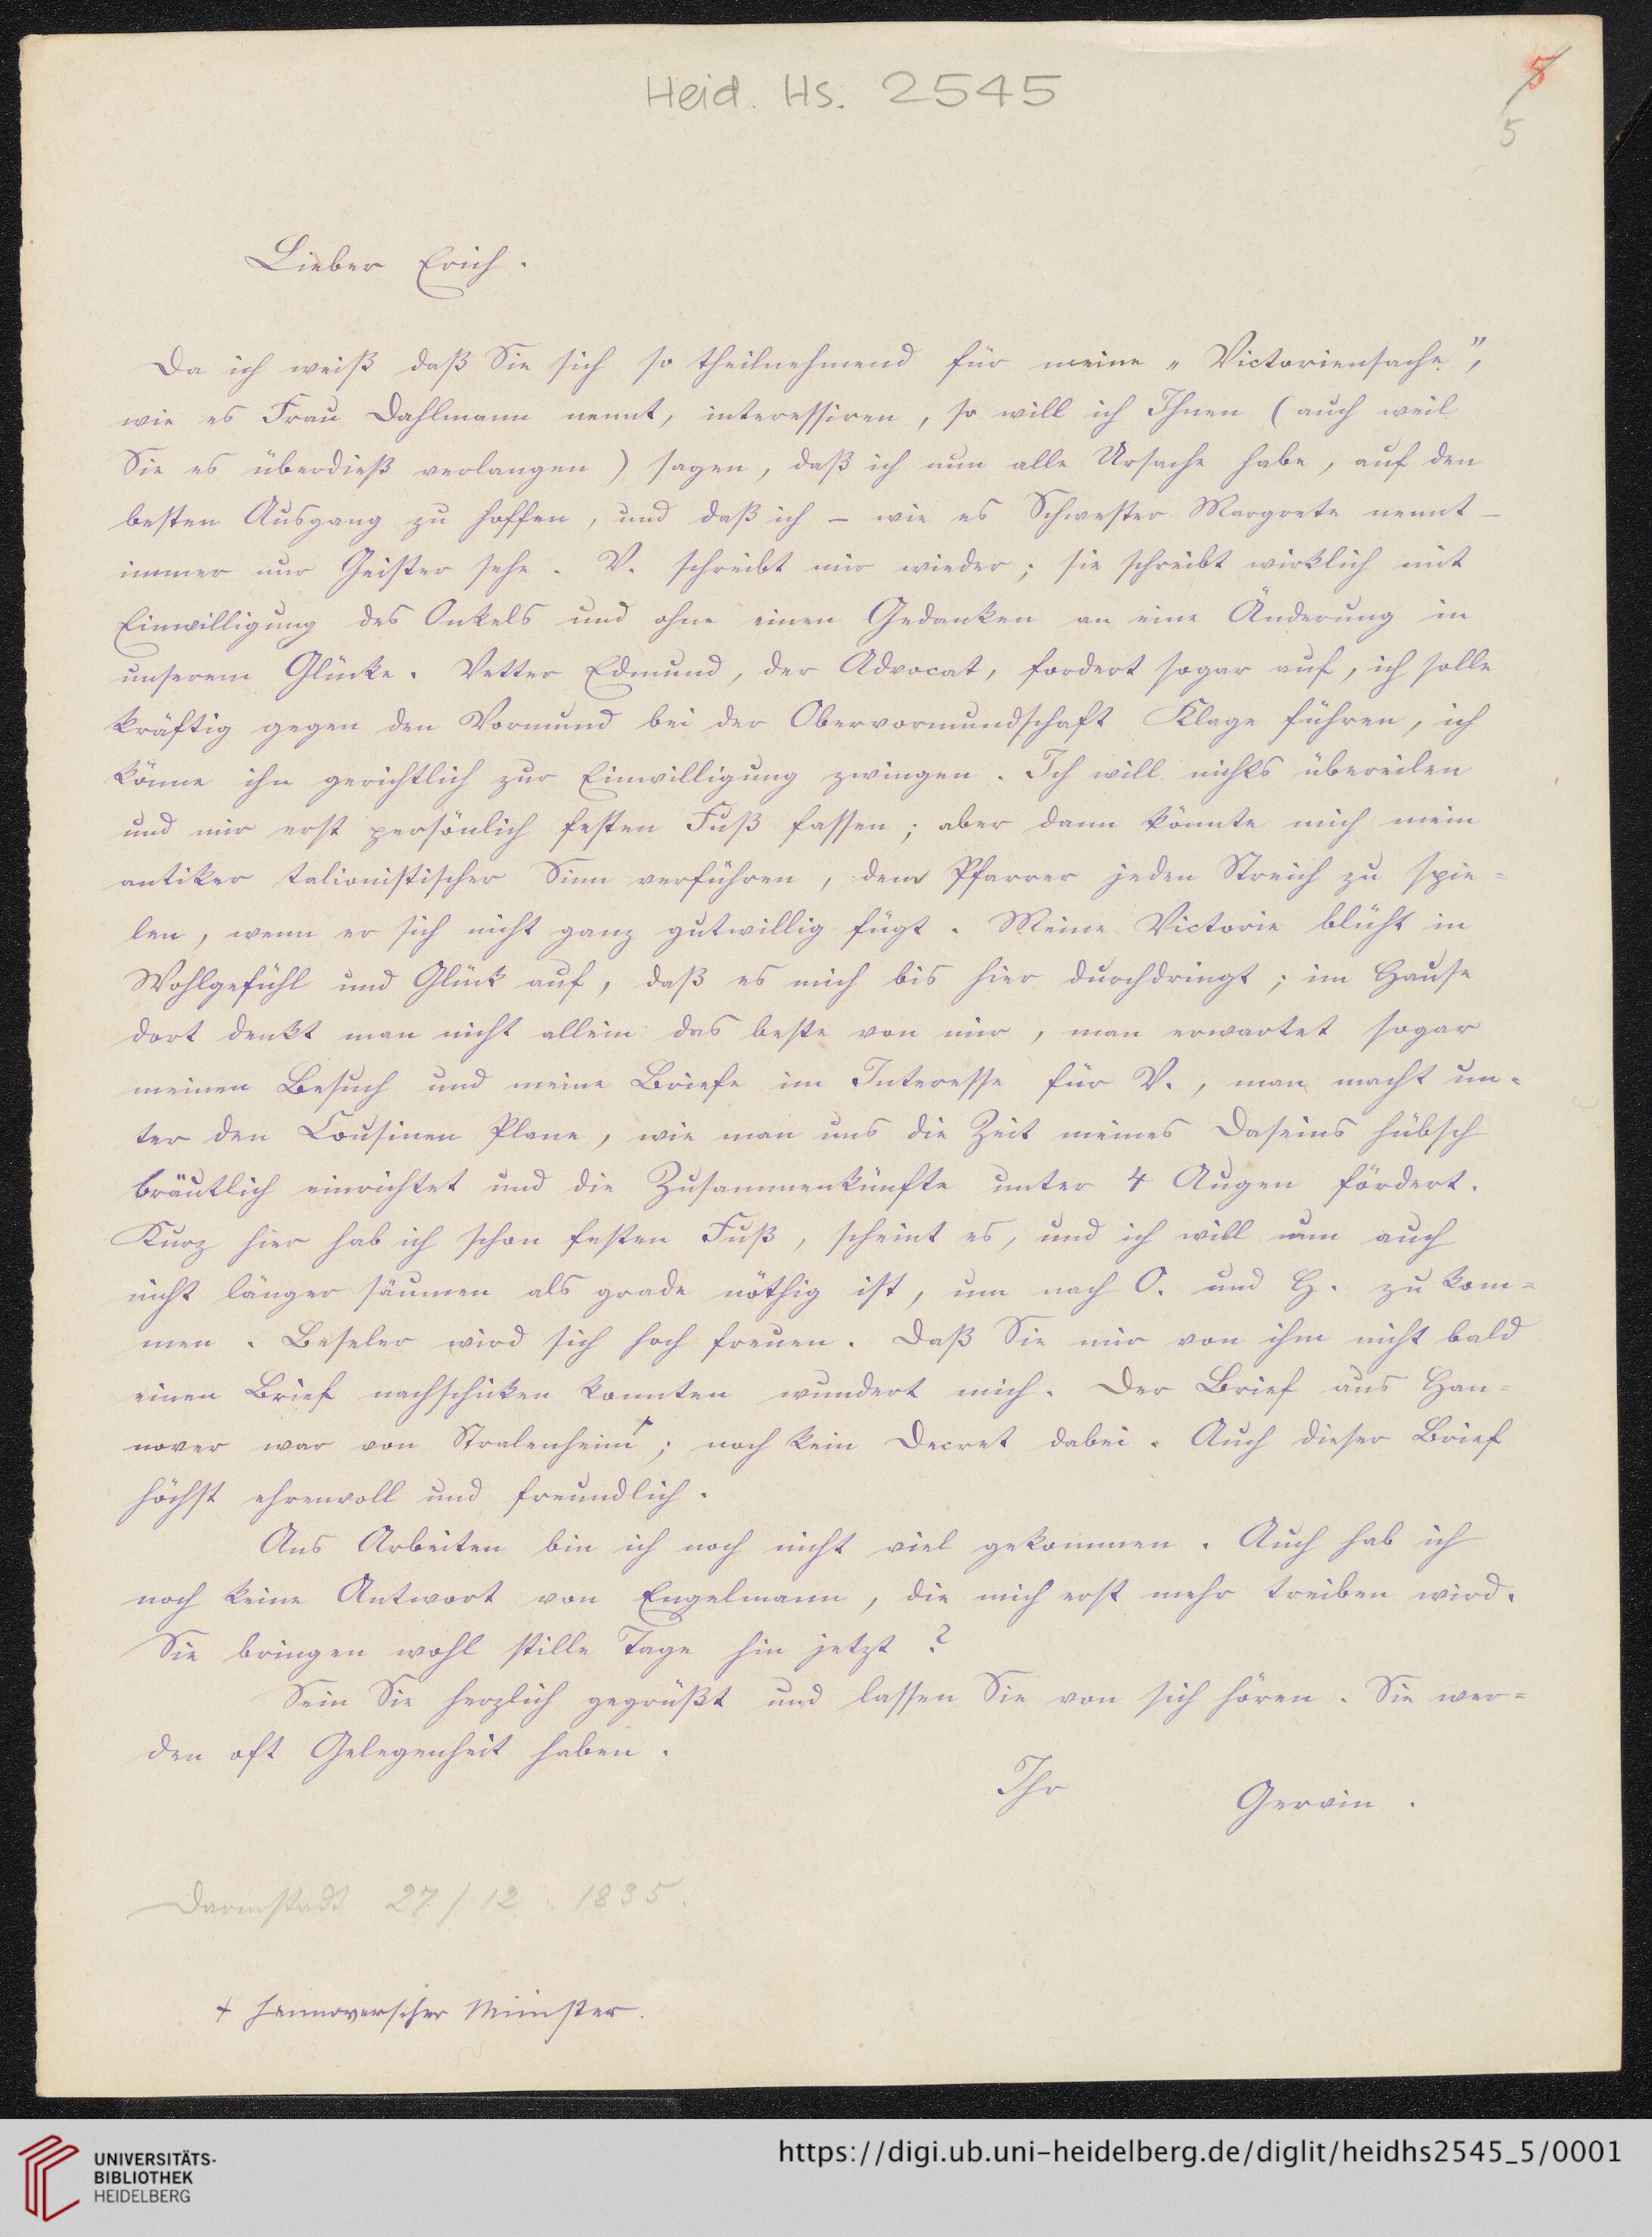 Heid. Hs. 2545
5
5
Lieber Erich.
Da ich weiß daß Sie sich so theilnehmend für meine „Victoriensache",
wie es Frau Dahlmann nennt, interessiren, so will ich Ihnen (auch weil
Sie es überdieß verlangen) sagen, daß ich nun alle Ursache habe, auf den
besten Ausgang zu hoffen, und daß ich – wie es Schwester Margrete nennt –
immer nur Geister sehe. V. schreibt mir wieder; sie schreibt wirklich mit
Einwilligung des Onkels und ohne einen Gedanken an eine Änderung in
unserem Glücke. Vetter Edmund, der Advocat, fordert sogar auf, ich solle
kräftig gegen den Vormund bei der Obervormundschaft Klage führen, ich
könne ihn gerichtlich zur Einwilligung zwingen. Ich will nichts übereilen
und mir erst persönlich festen Fuß fassen; aber dann könnte mich mein
antiker talionistischer Sinn verführen, dem Pfarrer jeden Streich zu spie=
len, wenn er sich nicht ganz gutwillig fügt. Meine Victorie blüht in
Wohlgefühl und Glück auf, daß es mich bis hier durchdringt; im Hause
dort denkt man nicht allein das beste von mir, man erwartet sogar
meinen Besuch und meine Briefe im Interesse für V., man macht un=
ter den Cousinen Plane, wie man uns die Zeit meines Daseins hübsch
bräutlich einrichtet und die Zusammenkünfte unter 4 Augen fördert.
Kurz hier hab ich schon festen Fuß, scheint es, und ich will nun auch
nicht länger säumen als grade nöthig ist, um nach O. und H. zu kom=
men. Beseler wird sich hoch freuen. Daß Sie mir von ihm nicht bald
einen Brief nachschicken konnten wundert mich. Der Brief aus Han=
nover war von Stralenheim+; noch kein Decret dabei. Auch dieser Brief
höchst ehrenvoll und freundlich.
Ans Arbeiten bin ich noch nicht viel gekommen. Auch hab ich
noch keine Antwort von Engelmann, die mich erst mehr treiben wird.
Sie bringen wohl stille Tage hin jetzt?
Sein Sie herzlich gegrüßt und lassen Sie von sich hören. Sie wer=
den oft Gelegenheit haben.
Ihr Gervin.
Darmstadt 27/12. 1835.
+ hannoverscher Minister.
UNIVERSITÄTS-
BIBLIOTHEK
HEIDELBERG
https://digi.ub.uni-heidelberg.de/diglit/heidhs2545_5/0001